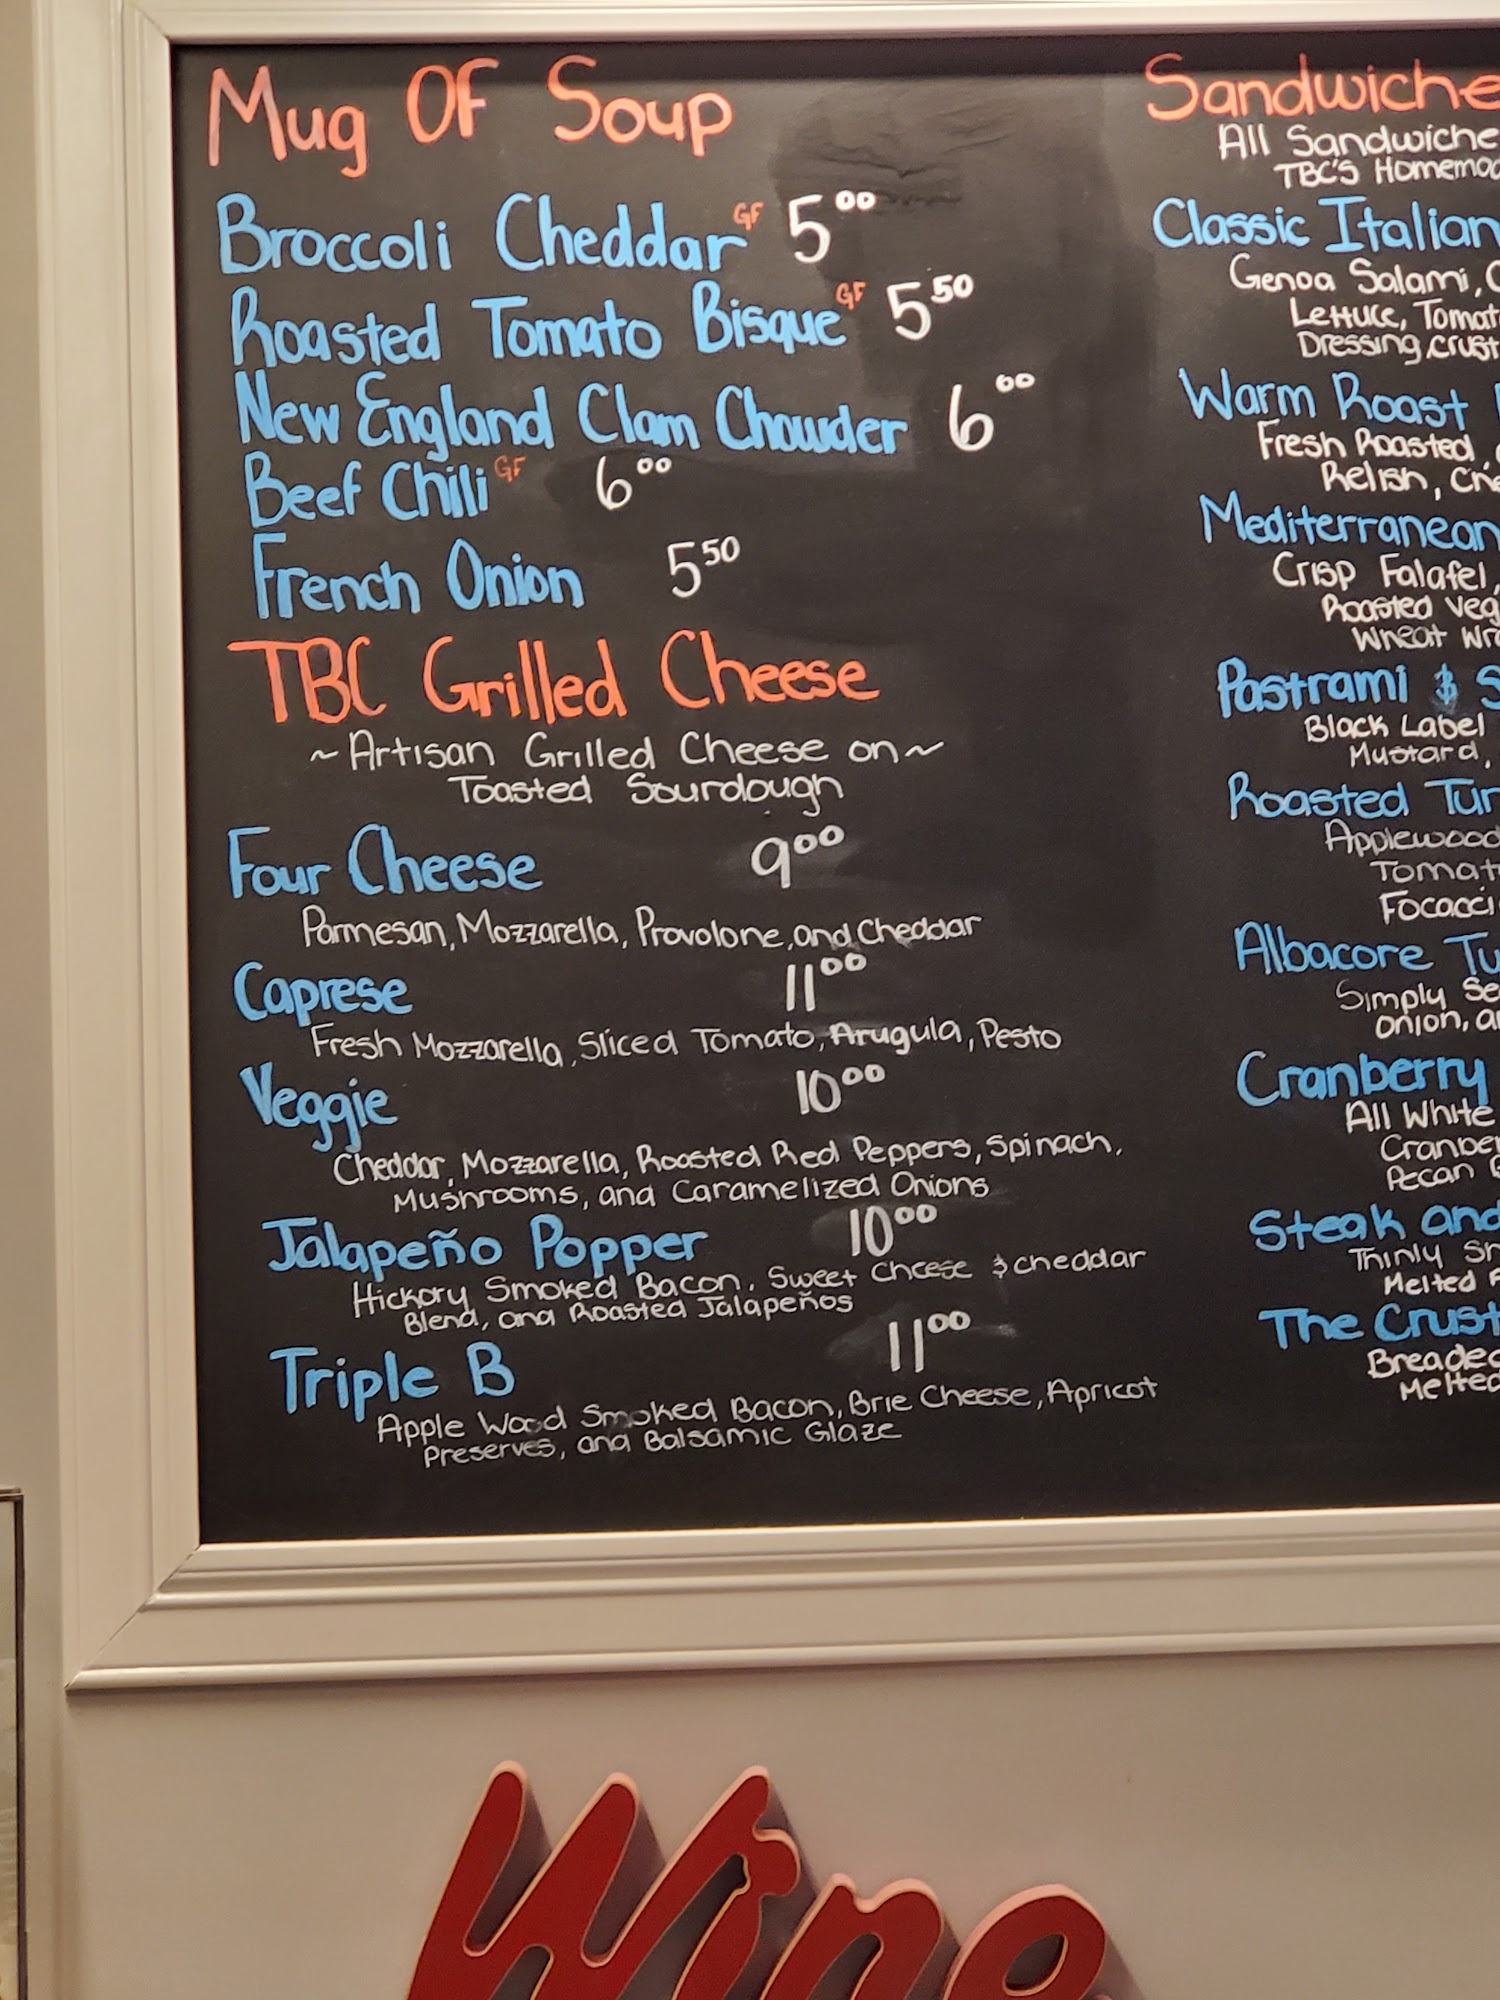 Mug OF Soup
Broccoli Cheddar GF 5.00
Roasted Tomato Bisque GF 5.50
New England Clam Chowder 6.00
Beef Chili GF 6.00
French Onion 5.50
TBC Grilled Cheese
~Artisan Grilled Cheese on~
Toasted Sourdough
Four Cheese 9.00
Parmesan, Mozzarella, Provolone, and Cheddar
Caprese 11.00
Fresh Mozzarella, Sliced Tomato, Arugula, Pesto
Veggie 10.00
Cheddar, Mozzarella, Roasted Red Peppers, Spinach,
Mushrooms, and Caramelized Onions
Jalapeño Popper 10.00
Hickory Smoked Bacon, Sweet Cheese & cheddar
Blend, and Roasted Jalapeños
Triple B 11.00
Apple Wood Smoked Bacon, Brie Cheese, Apricot
Preserves, and Balsamic Glaze
Sandwiche
All Sandwiche
TBC's Homemad
Classic Italian
Genoa Salami,
Lettuce, Tomat
Dressing, crust
Warm Roast
Fresh Roasted
Relish, Che
Mediterranean
Crisp Falafel,
Roasted Veg
Wheat Wra
Pastrami & S
Black Label
Mustard,
Roasted Tur
Applewood
Tomat
Focacci
Albacore Tu
Simply Se
onion, a
Cranberry
All White
Cranbe
Pecan
Steak and
Thinly Sh
Melted
The Crust
Breaded
Melted
Wine